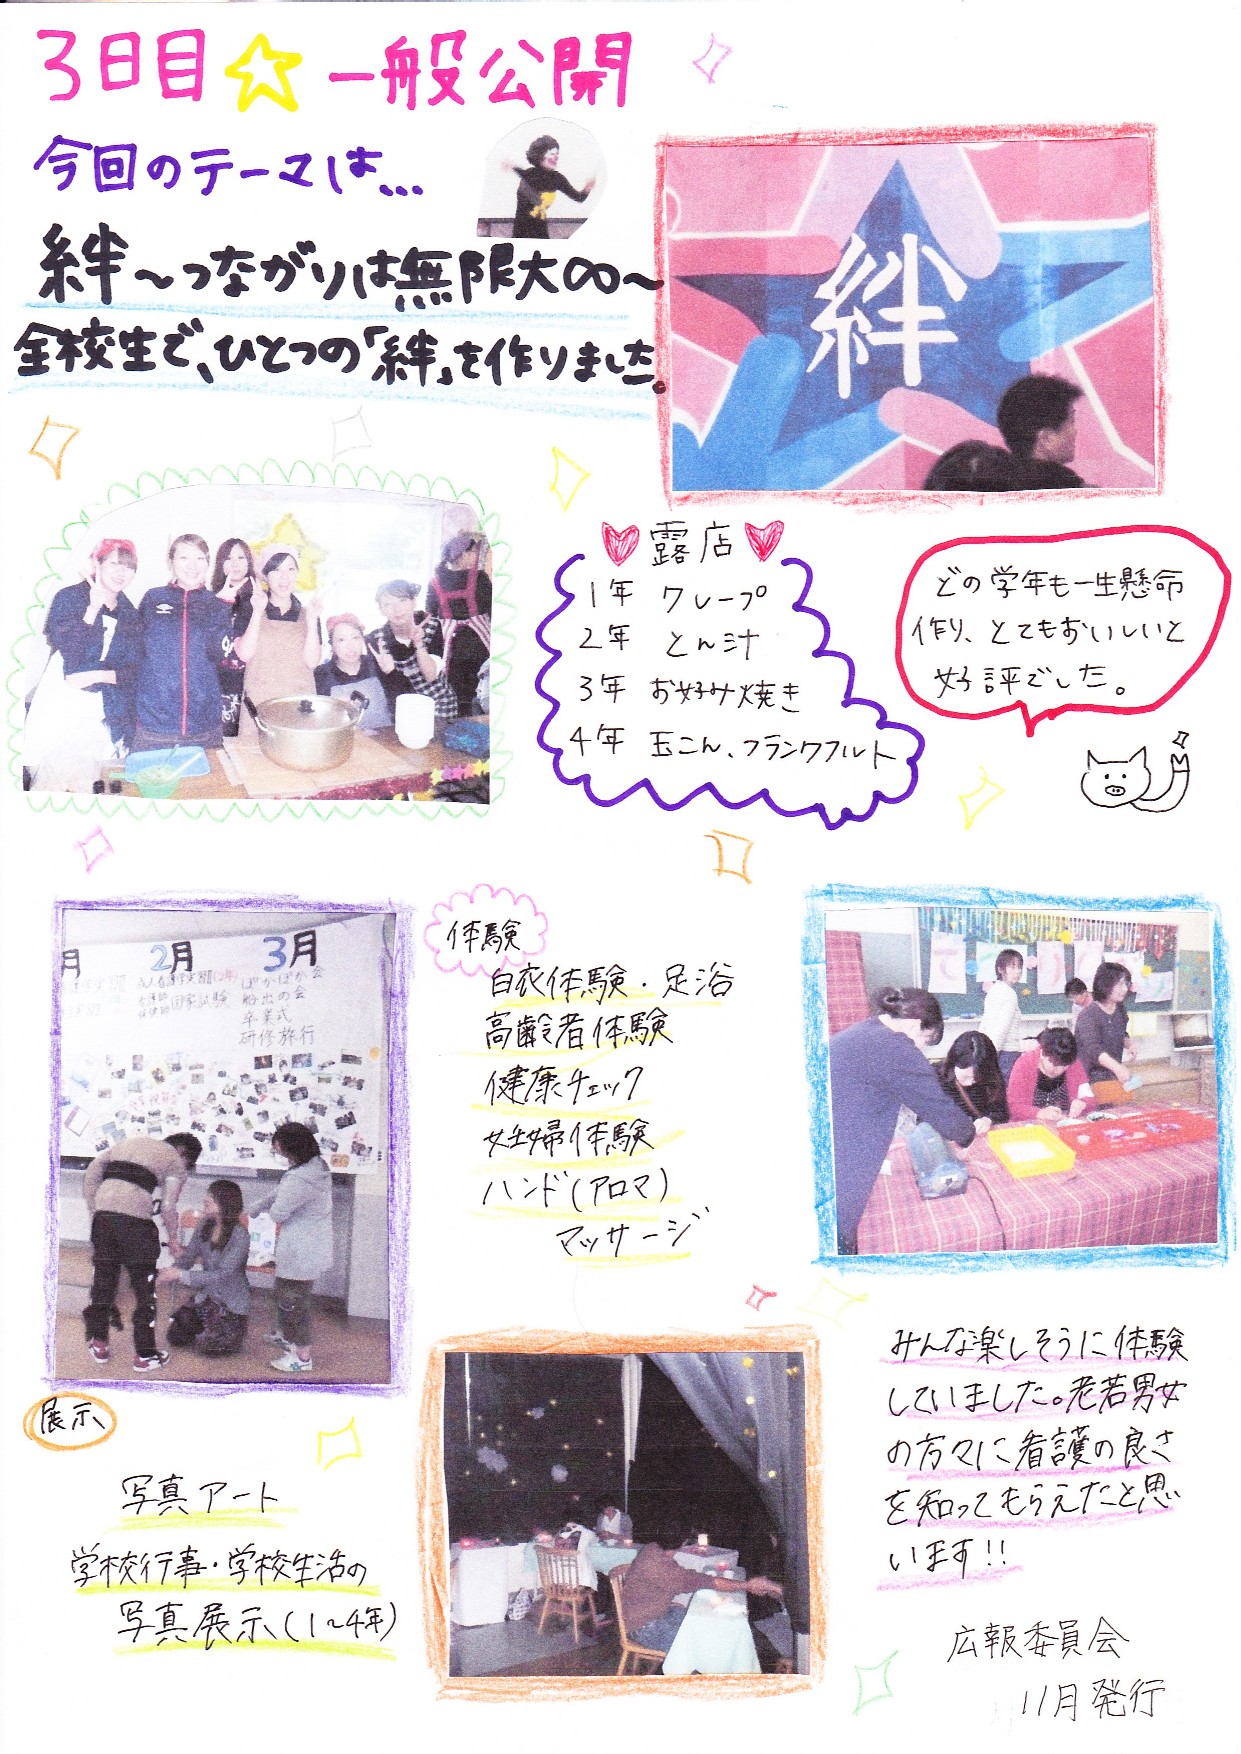 3日目☆一般公開
今回のテーマは...
絆〜つながりは無限大∞〜
全校生で、ひとつの「絆」を作りました。
絆
露店
1年 クレープ
2年 とん汁
3年 お好み焼き
4年 玉こん、フランクフルト
どの学年も一生懸命
作り、とてもおいしいと
好評でした。
2月 3月
国家試験
ぽかぽか会
船出の会
卒業式
研修旅行
体験
白衣体験・足浴
高齢者体験
健康チェック
妊婦体験
ハンド(アロマ)
マッサージ
展示
写真アート
学校行事・学校生活の
写真展示(1〜4年)
みんな楽しそうに体験
していました。老若男女
の方々に看護の良さ
を知ってもらえたと思
います!!
広報委員会
11月発行